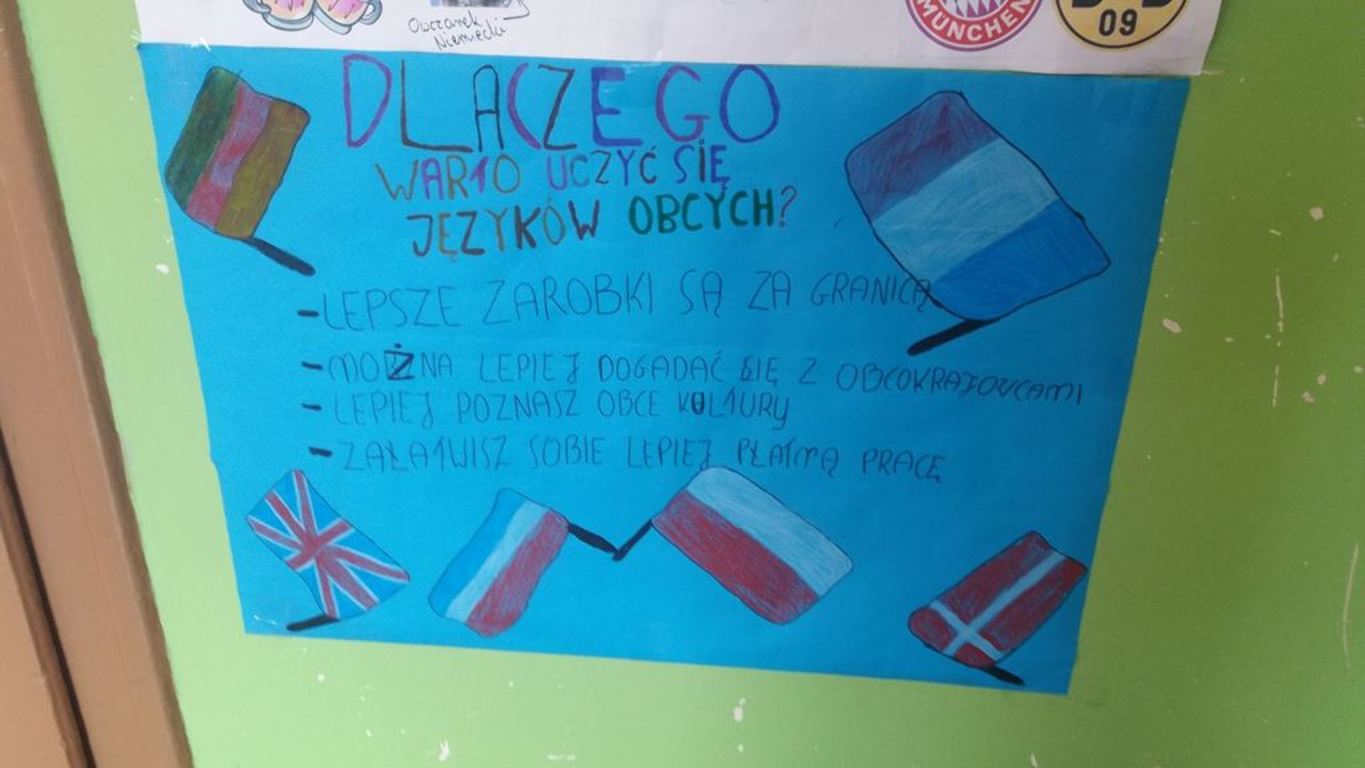 Owczarek
Niemiecki
MÜNCHEN
09
DLACZEGO
WARTO UCZYĆ SIĘ
JĘZYKÓW OBCYCH?
-LEPSZE ZAROBKI SĄ ZA GRANICĄ
-MOŻNA LEPIEJ DOGADAĆ SIĘ Z OBCOKRAJOWCAMI
-LEPIEJ POZNASZ OBCE KULTURY
-ZAŁATWISZ SOBIE LEPIEJ PŁATNĄ PRACĘ